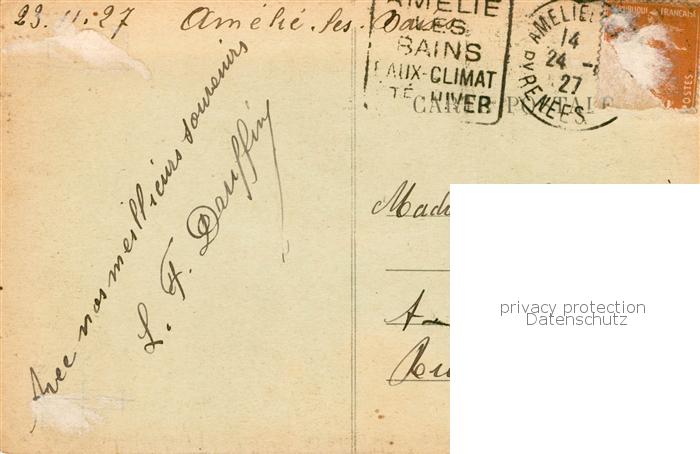 23.11.27 Amélie-les-Bains
AMÉLIE
LES
BAINS
EAUX-CLIMAT
ÉTÉ HIVER
AMELIE
14
24 -
27
PYRENEES
REPUBLIQUE FRANCAISE
POSTES
CARTE POSTALE
Avec nos meilleurs souvenirs
L. F. Dauffin
Mad
A-
privacy protection
Datenschutz